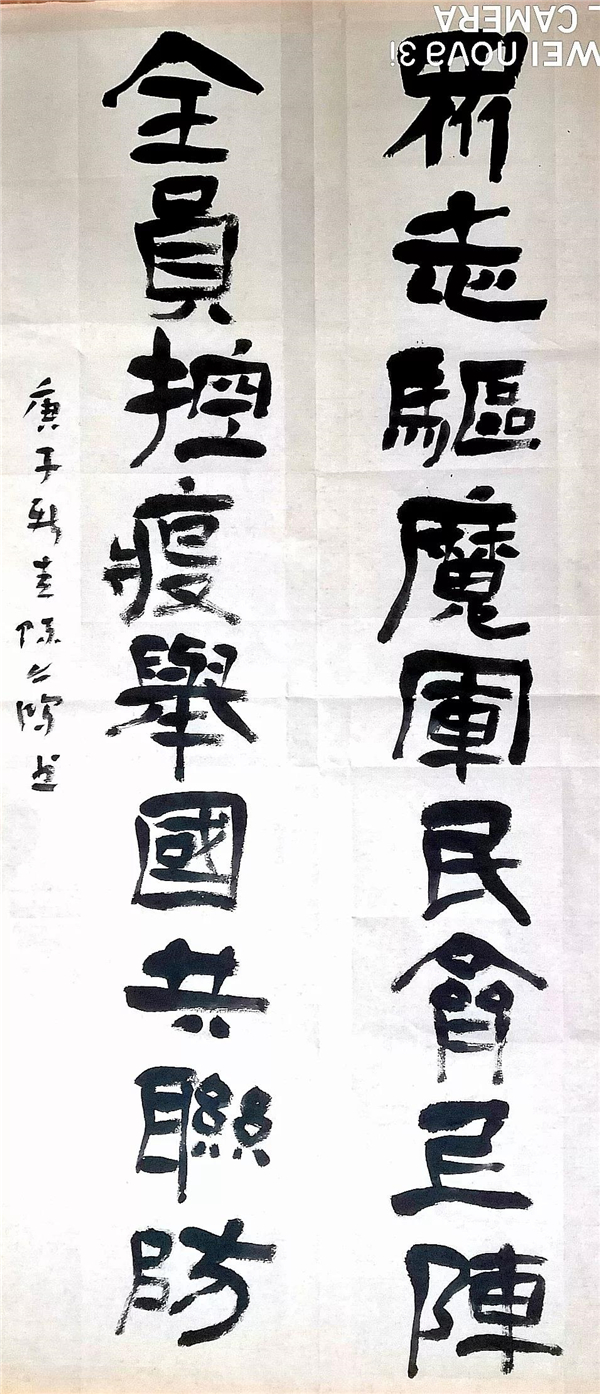 眾志驅魔軍民僉上陣
全員控疫舉國共聯防
庚子新春陳公書
WEI nova 3i
L CAMERA